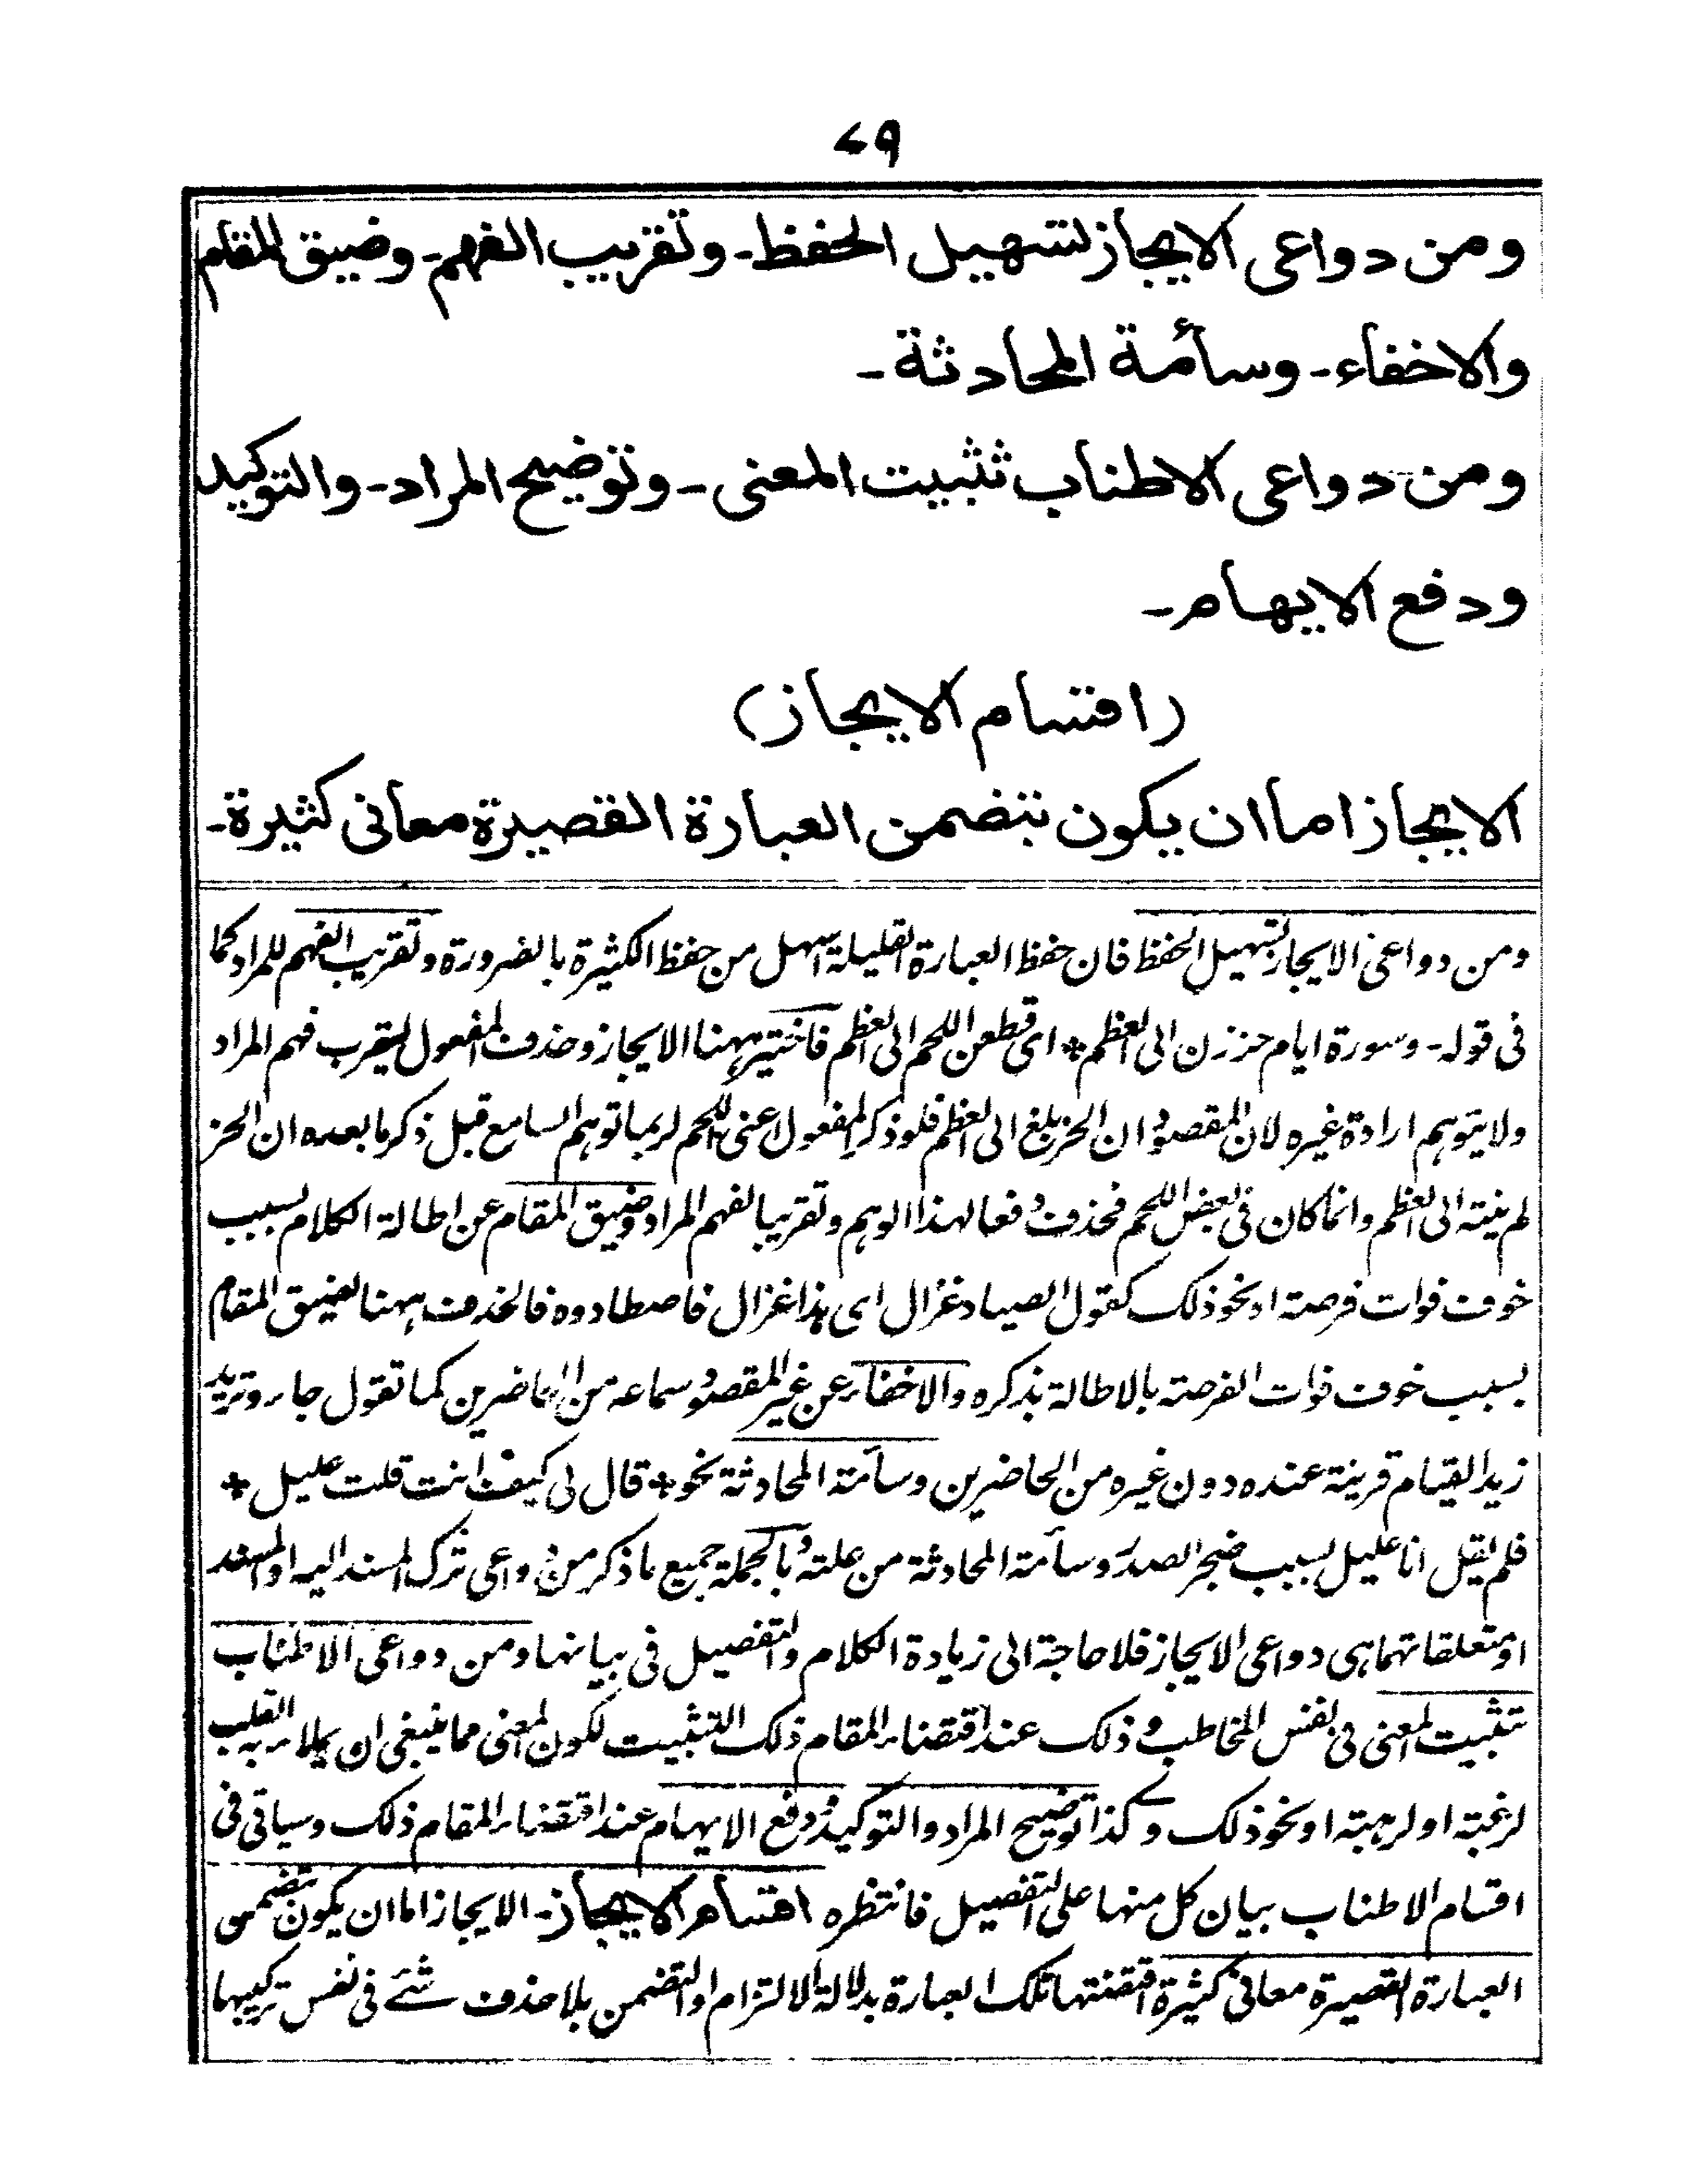 ۷۹
ومن دواعی الایجاز تسهیل الحفظ۔ وتقریب الفهم۔ وضیق المقام
والاخفاء۔ وسأمة المحادثة۔
ومن دواعی الاطناب تثبیت المعنی۔ وتوضیح المراد۔ والتوکید
ودفع الایهام۔
(اقسام الایجاز)
الایجاز اما ان یکون بتضمن العبارة القصیرة معانی کثیرة۔
ومن دواعی الایجاز تسهیل الحفظ فان حفظ العبارة القلیلة اسهل من حفظ الکثیرة بالضرورة وتقریب الفهم للمراد کما
فی قوله۔ وسورة ایام حززن الی العظم * ای قطعن اللحم الی العظم فاختیر ههنا الایجاز وحذف المفعول لیقرب فهم المراد
ولا یتوهم ارادة غیره لان المقصود ان الحز بلغ الی العظم فلو ذکر المفعول اعنی اللحم لربما توهم السامع قبل ذکر ما بعده ان الحز
لم ینته الی العظم وانما کان فی بعض اللحم فحذف دفعا لهذا الوهم وتقریبا لفهم المراد وضیق المقام عن اطالة الکلام بسبب
خوف فوات فرصة او نحو ذلک کقول الصیاد غزال ای هذا غزال فاصطادوه فالحذف ههنا لضیق المقام
بسبب خوف فوات الفرصة بالاطالة بذکره والاخفاء عن غیر المقصود سماعه من الحاضرین کما تقول جاء وترید
زیدا لقیام قرینة عنده دون غیره من الحاضرین وسآمة المحادثة نحو * قال لی کیف انت قلت علیل *
فلم یقل انا علیل بسبب ضجر الصدر وسآمة المحادثة من علته وبالجملة جمیع ما ذکر من دواعی ترک المسند الیه او المسند
او متعلقاتهما هی دواعی الایجاز فلا حاجة الی زیادة الکلام والتفصیل فی بیانها ومن دواعی الاطناب
تثبیت المعنی فی نفس المخاطب وذلک عند اقتضاء المقام ذلک التثبیت لکون المعنی مما ینبغی ان یملاء به القلب
لرغبة او لرهبة او نحو ذلک وکذا توضیح المراد والتوکید ودفع الایهام عند اقتضاء المقام ذلک وسیاتی فی
اقسام الاطناب بیان کل منها علی التفصیل فانتظره اقسام الایجاز۔ الایجاز اما ان یکون بتضمن
العبارة القصیرة معانی کثیرة اقتضتها تلک العبارة بدلالة الالتزام او التضمن بلا حذف شئے فی نفس ترکیبها